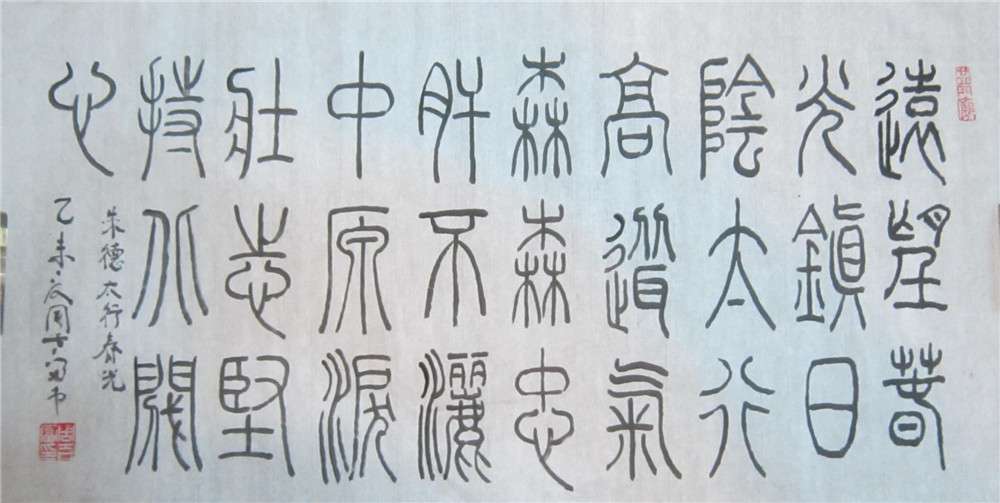 遠望春
光鎮日
陰太行
高道氣
森森忠
肝不灑
中原淚
壯志堅
持北閥
心
朱德太行春光
乙未